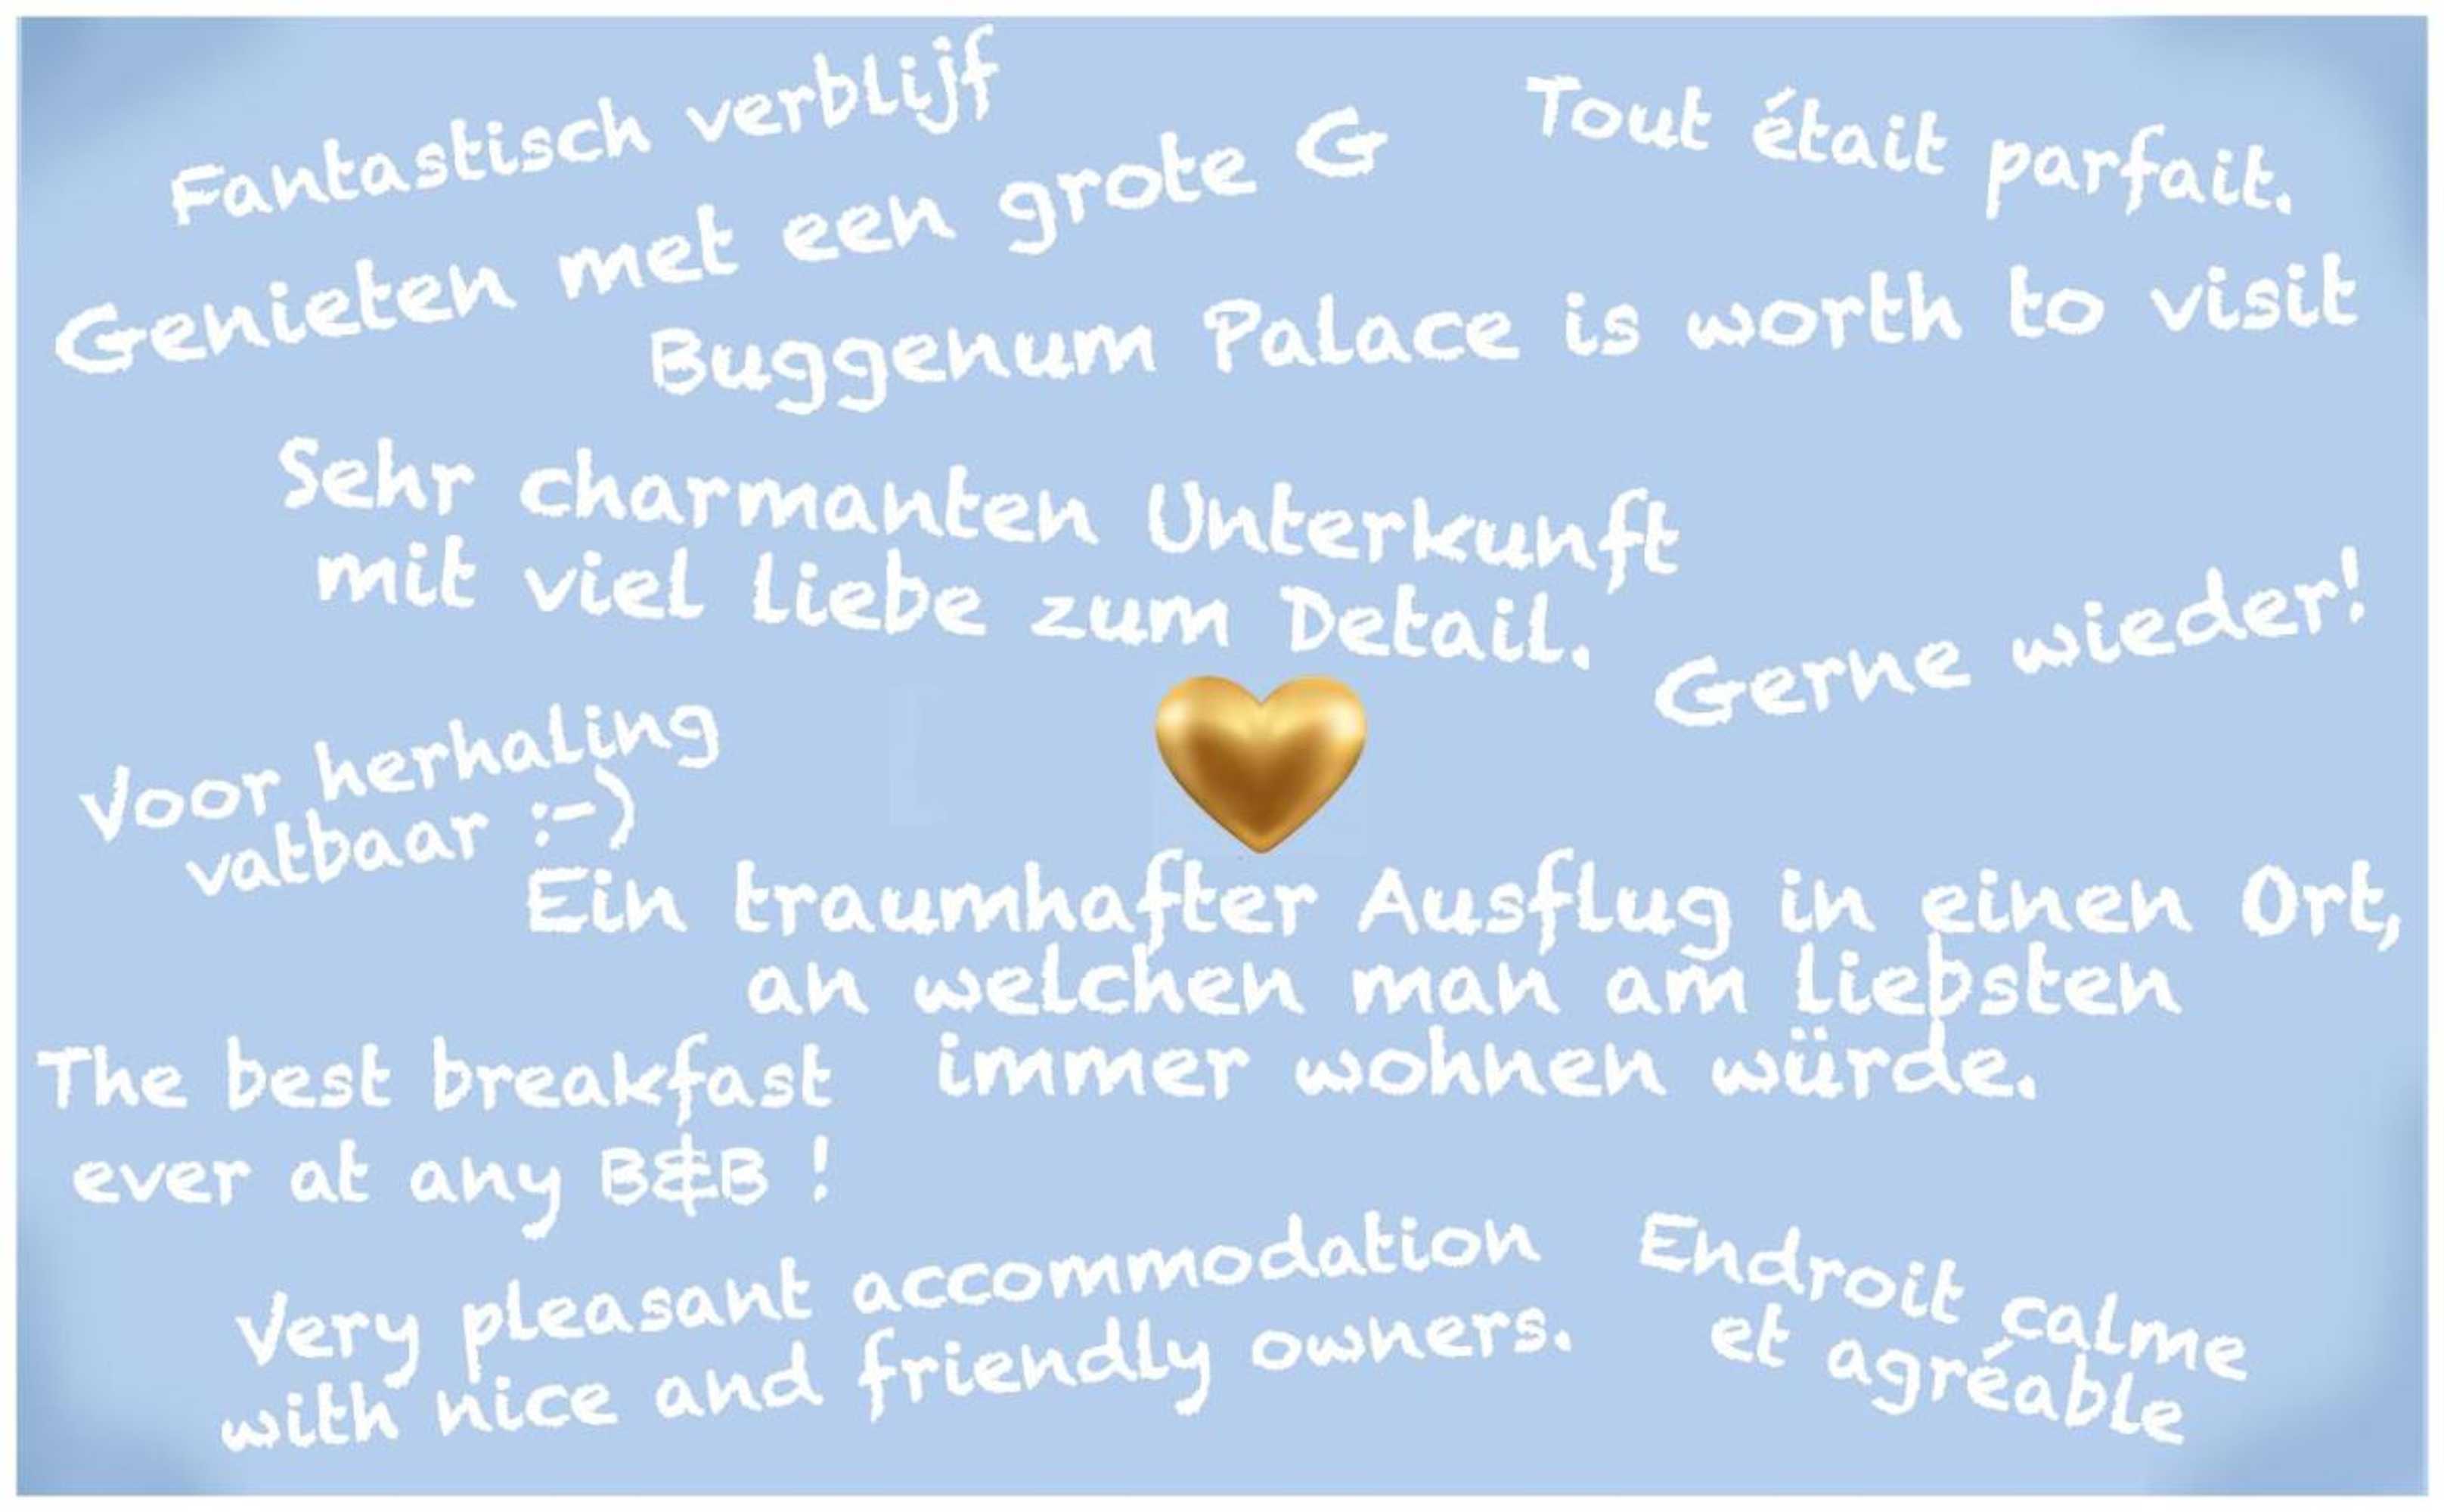 Fantastisch verblijf
Genieten met een grote G
Tout était parfait.
Buggenum Palace is worth to visit
Sehr charmanten Unterkunft
mit viel liebe zum Detail.
Gerne wieder!
Voor herhaling
vatbaar :-)
Ein traumhafter Ausflug in einen Ort,
an welchen man am liebsten
immer wohnen würde.
The best breakfast
ever at any B&B !
Very pleasant accommodation
with nice and friendly owners.
Endroit calme
et agréable